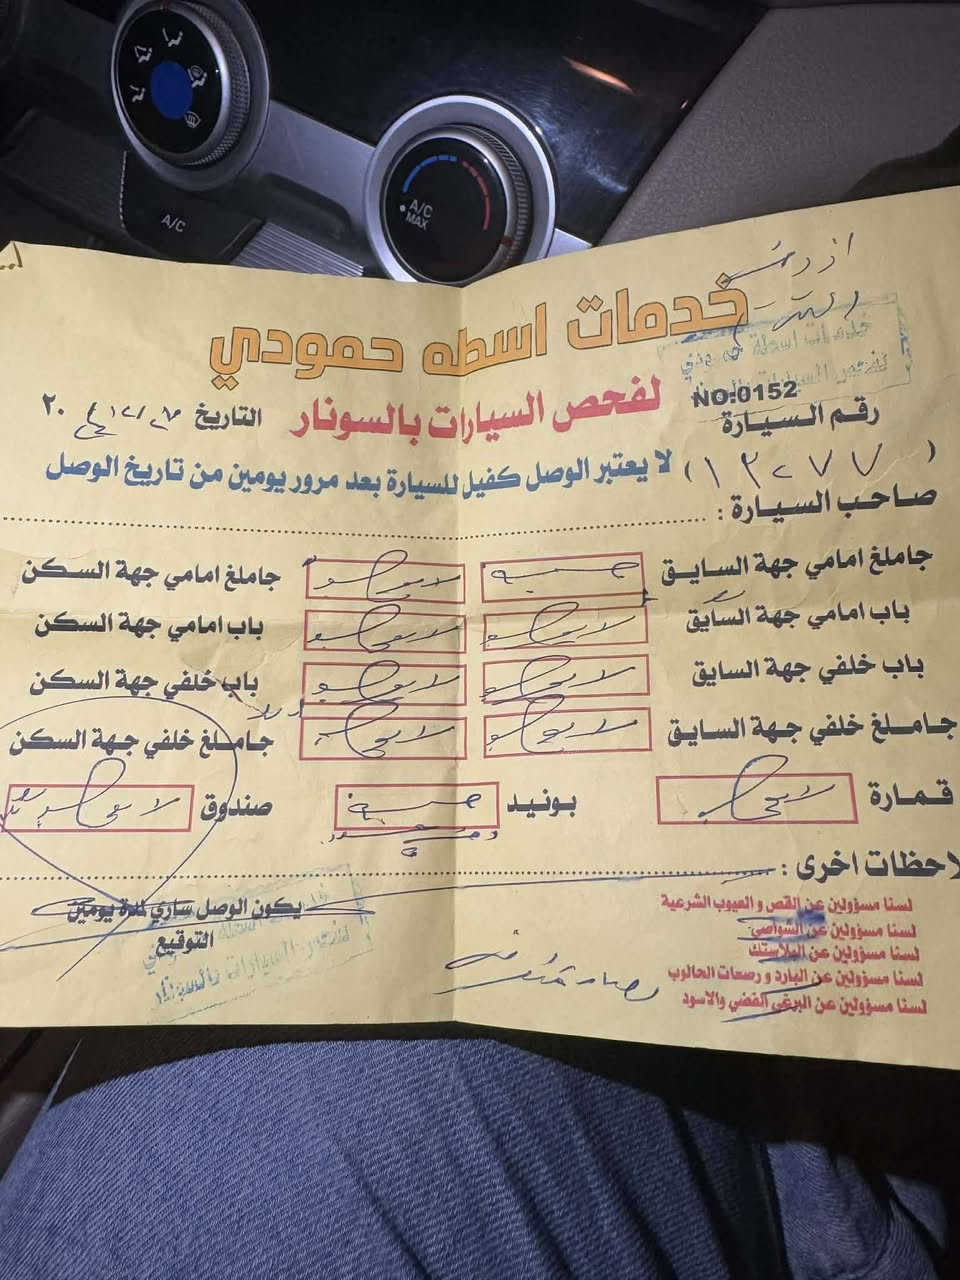 A/C
A/C
MAX
خدمات اسطه حمودي
لفحص السيارات بالسونار
NO:0152
رقم السيارة
التاريخ
٢٠
لا يعتبر الوصل كفيل للسيارة بعد مرور يومين من تاريخ الوصل
(١٣٢٧٧)
صاحب السيارة :
جاملغ امامي جهة السايق حبيه جاملغ امامي جهة السكن لا يوجد
باب امامي جهة السايق لا يوجد باب امامي جهة السكن لا يوجد
باب خلفي جهة السايق لا يوجد باب خلفي جهة السكن لا يوجد
جاملغ خلفي جهة السايق لا يوجد جاملغ خلفي جهة السكن لا يوجد
قمارة لا يوجد بونيد حبيه صندوق لا يوجد
لاحظات اخرى :
لسنا مسؤولين عن القص و العيوب الشرعية
لسنا مسؤولين عن الشواصي
لسنا مسؤولين عن البلاستك
لسنا مسؤولين عن البارد و رصعات الحالوب
لسنا مسؤولين عن البرغي الفضي والاسود
يكون الوصل ساري لمدة يومين
التوقيع